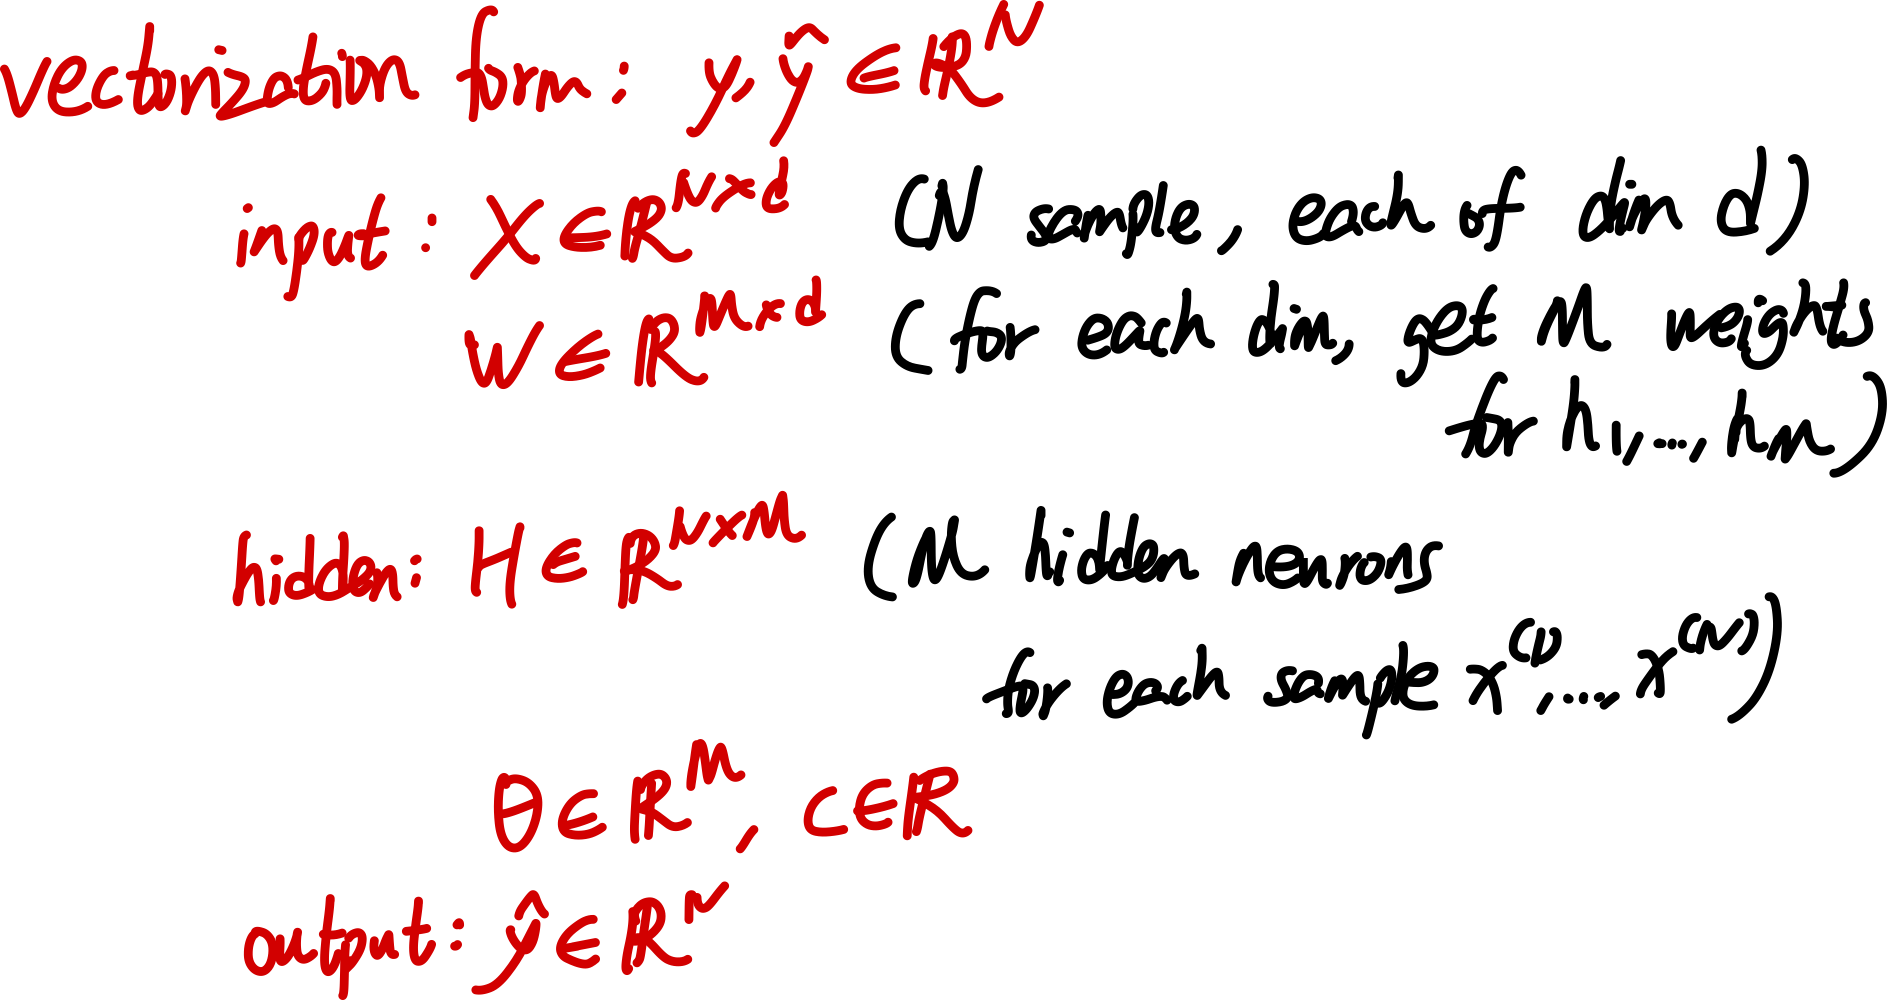 vectorization form: y, ŷ ∈ ℝ^N
input: X ∈ ℝ^{N×d} (N sample, each of dim d)
W ∈ ℝ^{M×d} (for each dim, get M weights
for h_1, ..., h_M)
hidden: H ∈ ℝ^{N×M} (M hidden neurons
for each sample x^{(1)}, ..., x^{(N)})
θ ∈ ℝ^M, c ∈ ℝ
output: ŷ ∈ ℝ^N